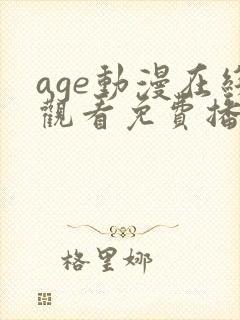 age動漫在線
觀看免費播
格里娜